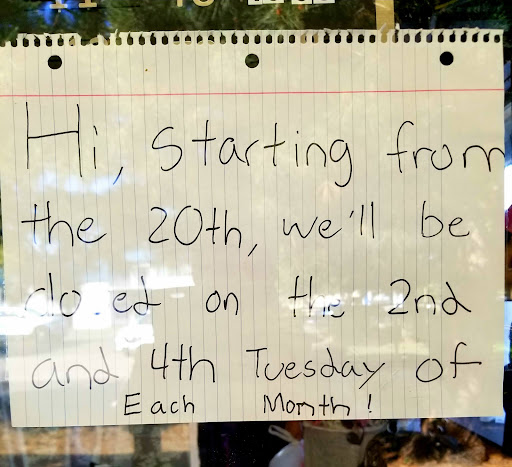 Hi, Starting from
the 20th, we'll be
closed on the 2nd
and 4th Tuesday of
Each Month!